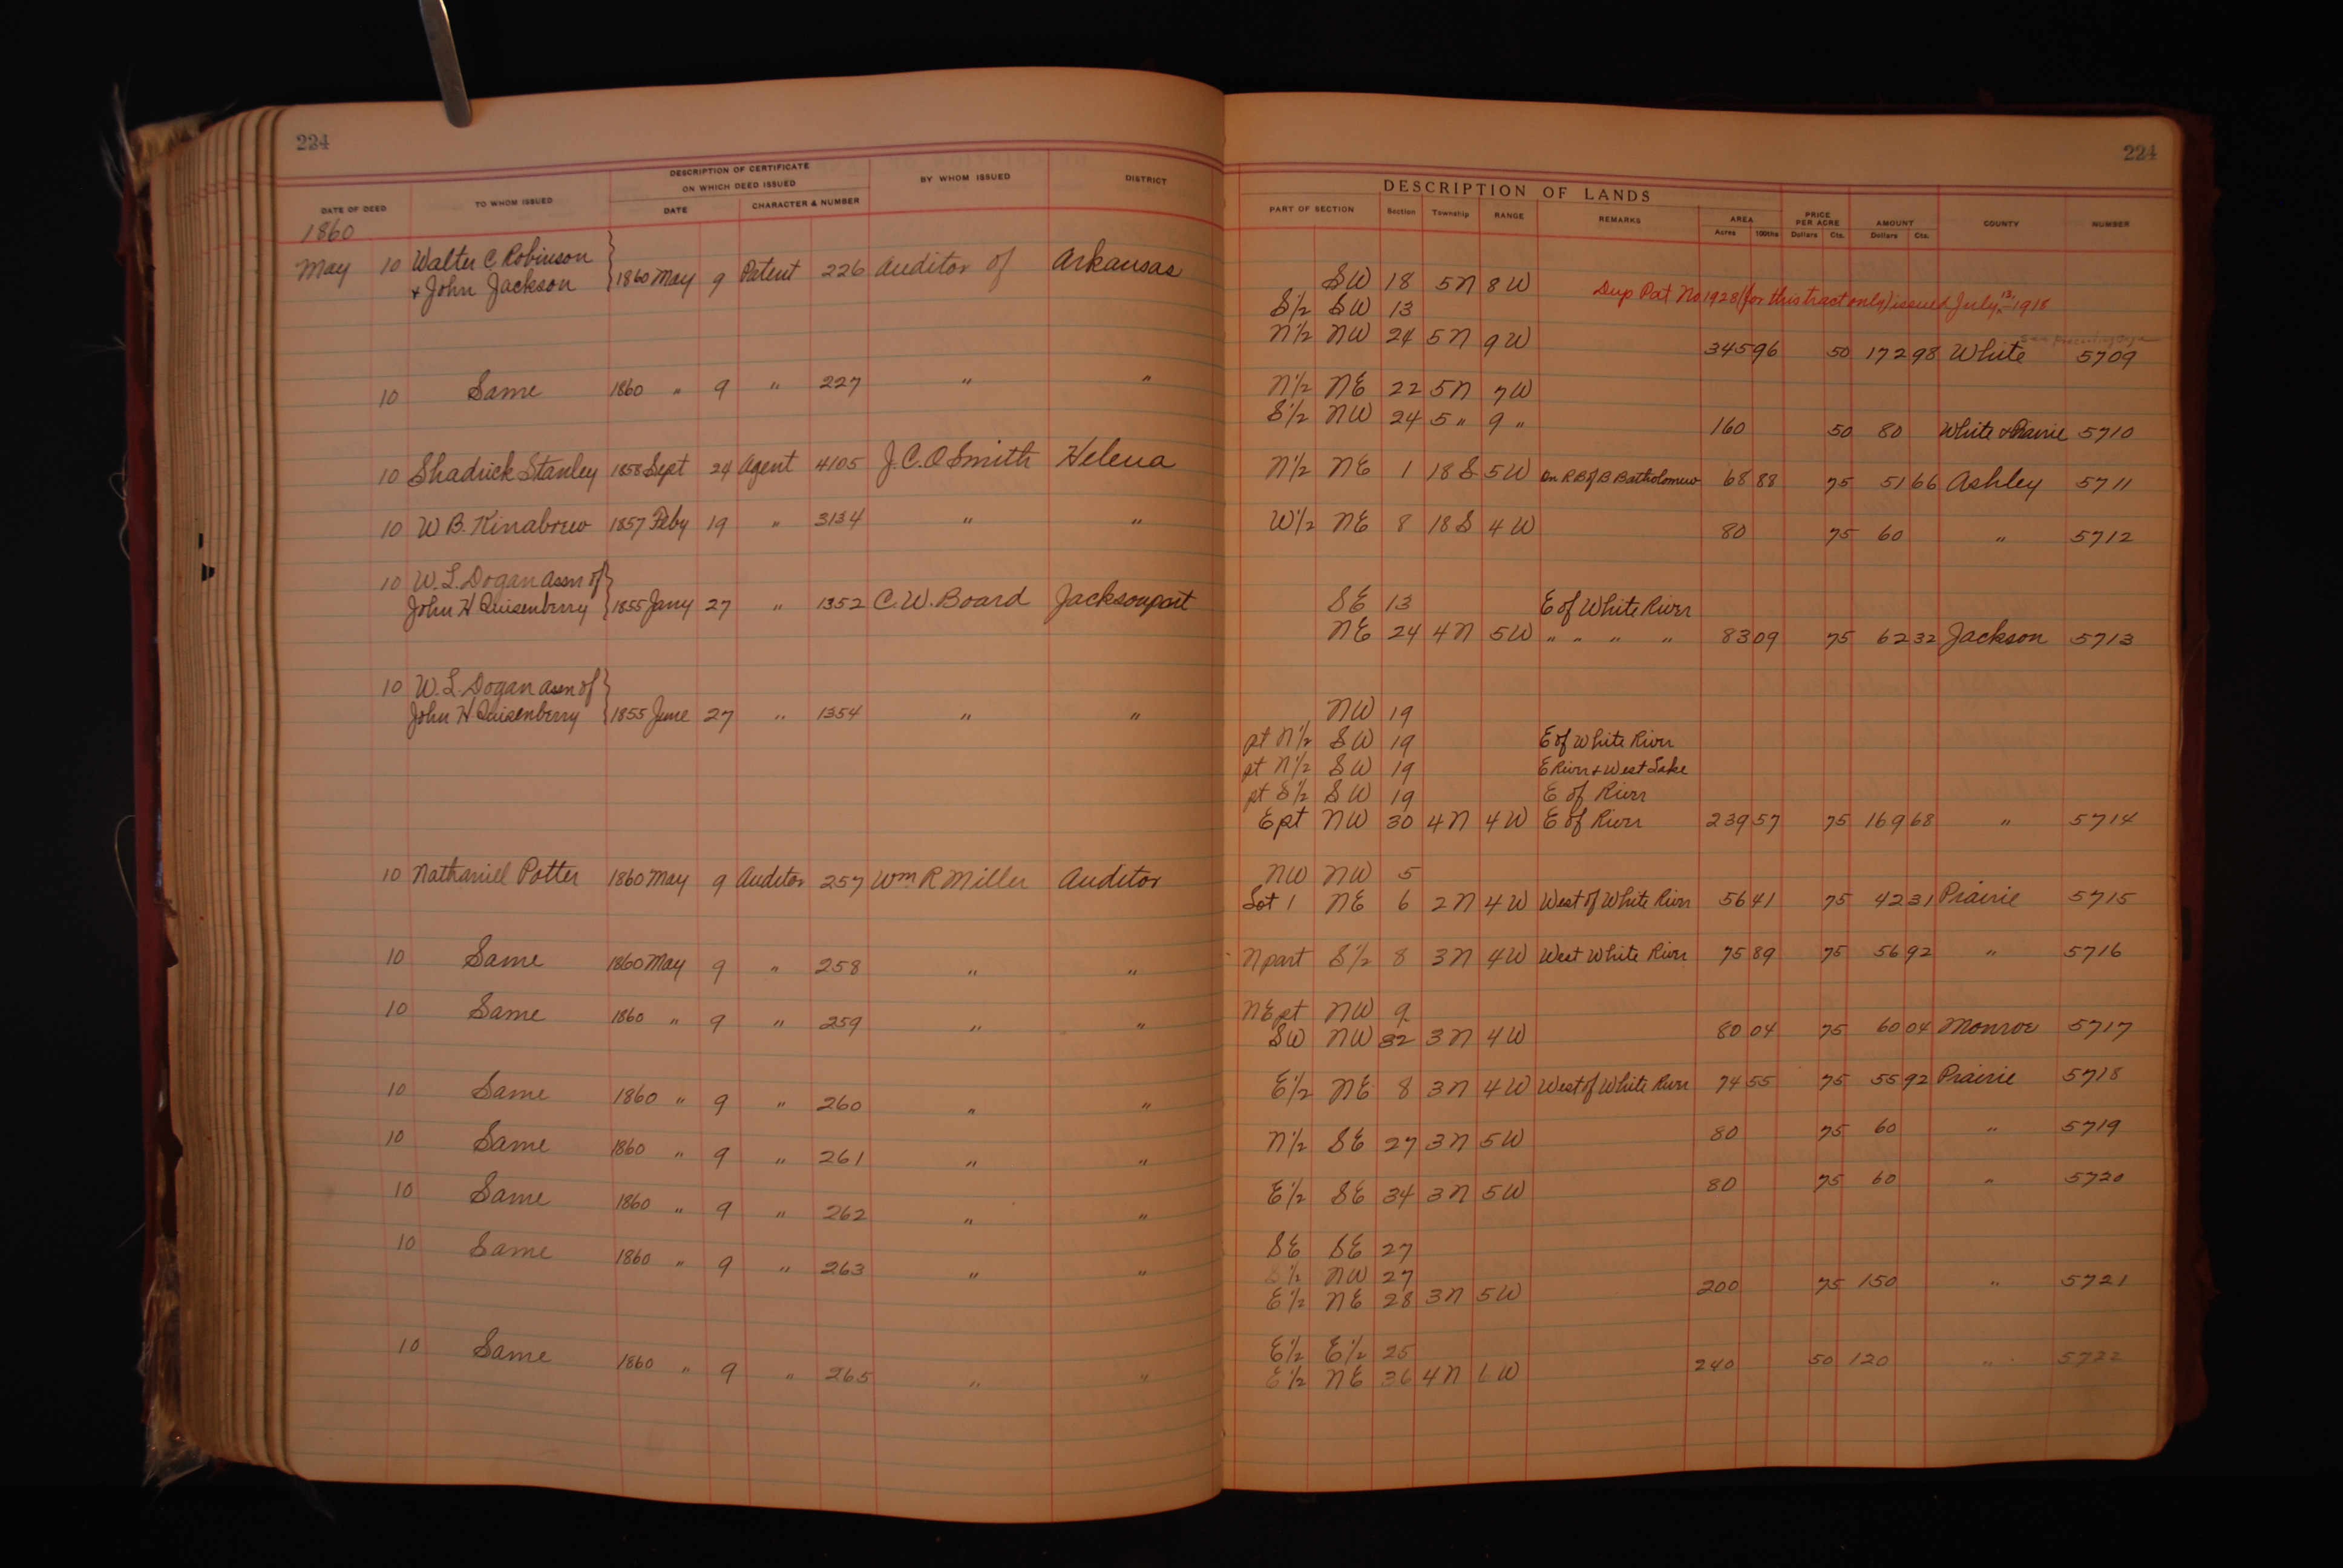 224
DESCRIPTION OF CERTIFICATE
ON WHICH DEED ISSUED
BY WHOM ISSUED DISTRICT
DATE OF DEED TO WHOM ISSUED DATE CHARACTER & NUMBER
1860
May 10 Walter C Robinson
& John Jackson 1860 May 9 Patent 226 Auditor of Arkansas
10 Same 1860 " 9 " 227 " "
10 Shadrick Stanley 1858 Sept 24 Agent 4105 J.C.O Smith Helena
10 W B. Kinabrew 1857 Feby 19 " 3134 " "
10 W. L. Dogan assn of
John H Quisenberry 1855 Jany 27 " 1352 C. W. Board Jacksonport
10 W. L. Dogan assn of
John H Quisenberry 1855 June 27 " 1354 " "
10 Nathaniel Potter 1860 May 9 Auditor 257 Wm R Miller Auditor
10 Same 1860 May 9 " 258 " "
10 Same 1860 " 9 " 259 " "
10 Same 1860 " 9 " 260 " "
10 Same 1860 " 9 " 261 " "
10 Same 1860 " 9 " 262 " "
10 Same 1860 " 9 " 263 " "
10 Same 1860 " 9 " 265 " "
224
DESCRIPTION OF LANDS
PART OF SECTION Section Township RANGE REMARKS AREA PRICE PER ACRE AMOUNT COUNTY NUMBER
Acres 100ths Dollars Cts. Dollars Cts.
SW 18 5N 8W Dup Pat No 1928 (for this tract only) issued July 13, 1918
S½ SW 13
N½ NW 24 5N 9W 345 96 50 172 98 White 5709
N½ NE 22 5N 7W
S½ NW 24 5 " 9 " 160 50 80 White & Prairie 5710
N½ NE 1 18 S 5W On R B of B Bartholomew 68 88 75 51 66 Ashley 5711
W½ NE 8 18 S 4W 80 75 60 " 5712
SE 13 E of White River
NE 24 4N 5W " " " " 83 09 75 62 32 Jackson 5713
NW 19
pt N½ SW 19 E of White River
pt N½ SW 19 E River & West Lake
pt S½ SW 19 E of River
E pt NW 30 4N 4W E of River 239 57 75 169 68 " 5714
NW NW 5
Lot 1 NE 6 2N 4W West of White River 56 41 75 42 31 Prairie 5715
N part S½ 8 3N 4W West White River 75 89 75 56 92 " 5716
NE pt NW 9
SW NW 32 3N 4W 80 04 75 60 04 Monroe 5717
E½ NE 8 3N 4W West of White River 74 55 75 55 92 Prairie 5718
N½ SE 27 3N 5W 80 75 60 " 5719
E½ SE 34 3N 5W 80 75 60 " 5720
SE SE 27
½ NW 27
E½ NE 28 3N 5W 200 75 150 " 5721
E½ E½ 25
E½ NE 36 4N 6W 240 50 120 " 5722